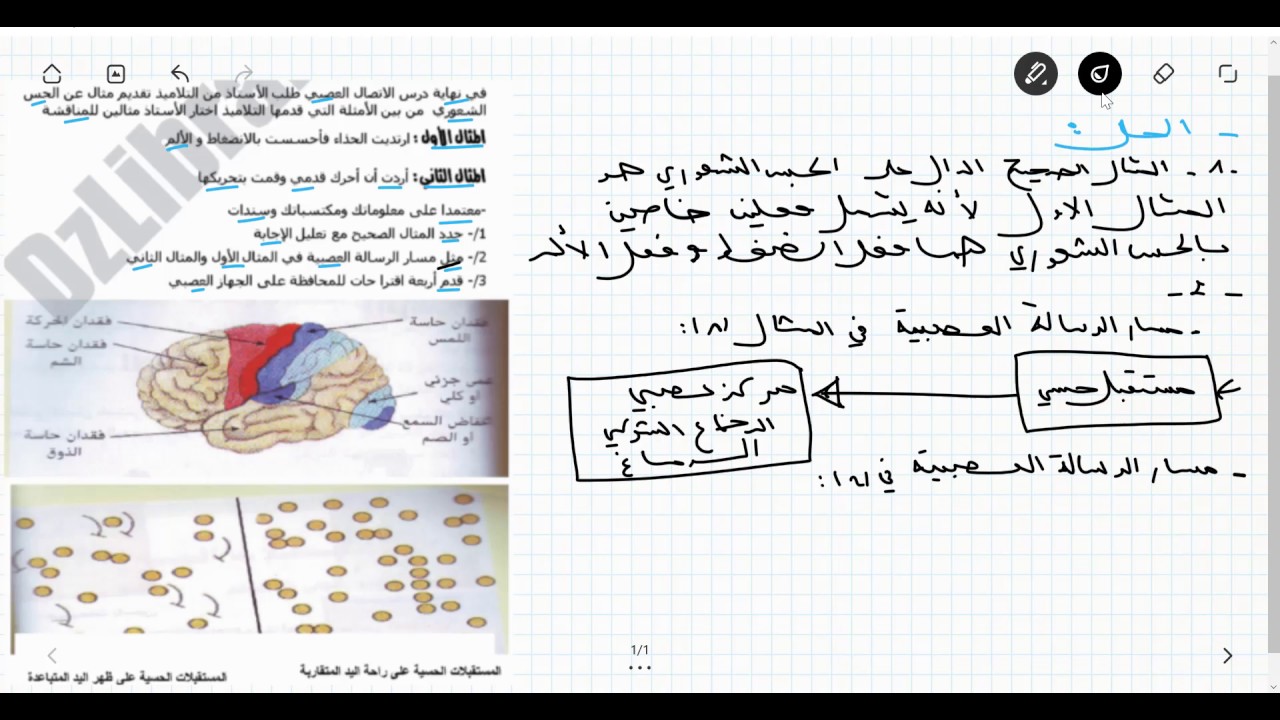 في نهاية درس الاتصال العصبي طلب الأستاذ من التلاميذ تقديم مثال عن الحس
الشعوري من بين الأمثلة التي قدمها التلاميذ اختار الأستاذ مثالين للمناقشة
المثال الأول : ارتديت الحذاء فأحسست بالانضغاط و الألم
المثال الثاني: أردت أن أحرك قدمي وقمت بتحريكها
-معتمدا على معلوماتك ومكتسباتك وسندات
1/- حدد المثال الصحيح مع تعليل الإجابة
2/- مثل مسار الرسالة العصبية في المثال الأول والمثال الثاني
3/- قدم أربعة اقترا حات للمحافظة على الجهاز العصبي
فقدان الحركة
فقدان حاسة
الشم
فقدان حاسة
الذوق
فقدان حاسة
اللمس
عمى جزئي
أو كلي
انخفاض السمع
أو الصم
المستقبلات الحسية على راحة اليد المتقاربة
المستقبلات الحسية على ظهر اليد المتباعدة
DzLibra
- الحل
1- المثال الصحيح الدال على الحس الشعوري هو
المثال الاول لأنه يشمل فعلين خاصين
بالحس الشعوري هما فعل الضغط و فعل الألم
- 2 -
- مسار الرسالة العصبية في المثال (1):
مستقبل حسي
مركز عصبي
الدماغ
- مسار الرسالة العصبية في (2):
1/1